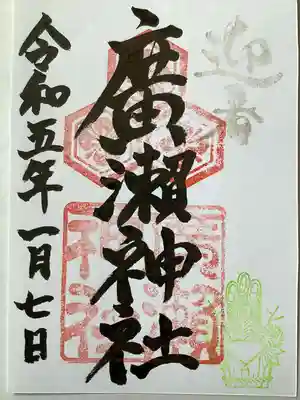 迎春
廣瀬神社
令和五年一月七日